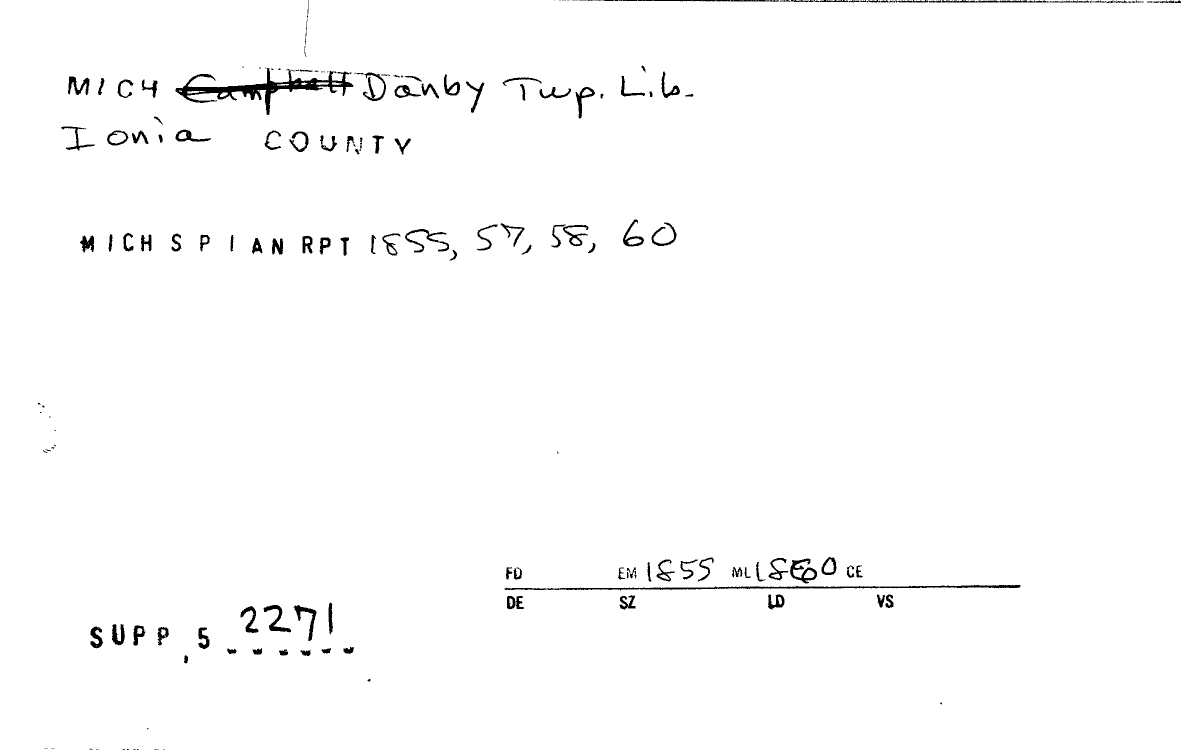 MICH Campbell Danby Twp. Lib.
Ionia COUNTY
MICH S P I AN RPT 1855, 57, 58, 60
FD EM 1855 ML 1860 CE
DE SZ LD VS
SUPP, 5 2271